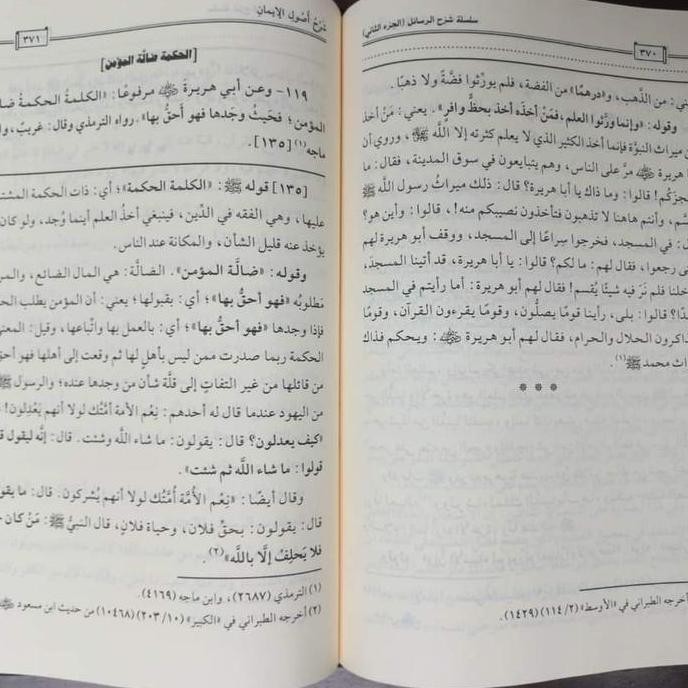 سلسلة شرح الرسائل (الجزء الثاني)
٣٧٠
ني: من الذَّهب، و«درهمًا» من الفضة، فلم يورِّثوا فضَّةً ولا ذهبًا.
وقوله: «وإنما ورَّثوا العلم، فمَنْ أخذه أخذ بحظٍّ وافرٍ». يعني: مَنْ أخذ
ن ميراث النبوَّة فإنما أخذ الكثير الذي لا يعلم كثرته إلا اللَّه ﷻ، وروي أن
ا هريرة ﷺ مرَّ على الناس، وهم يتبايعون في سوق المدينة، فقال: ما
جزَكُم! قالوا: وما ذاك يا أبا هريرة؟ قال: ذلك ميراثُ رسول اللَّه ﷺ
سَّم، وأنتم هاهنا لا تذهبون فتأخذون نصيبكم منه!، قالوا: وأين هو؟
ل: في المسجد، فخرجوا سِراعًا إلى المسجد، ووقف أبو هريرة لهم
نى رجعوا، فقال لهم: ما لكم؟ قالوا: يا أبا هريرة، قد أتينا المسجدَ،
خلنا فلم نَرَ فيه شيئًا يُقسم! فقال لهم أبو هريرة: أما رأيتم في المسجد
دًا؟ قالوا: بلى، رأينا قومًا يصلُّون، وقومًا يقرءون القرآن، وقومًا
ذاكرون الحلال والحرام، فقال لهم أبو هريرة ﷺ: ويحكم فذاك
راث محمد ﷺ(١).
* * *
أخرجه الطبراني في «الأوسط» (٢/ ١١٤) (١٤٢٩).
شَرْحُ أصُولِ الإيمَانِ
٣٧١
[الحكمة ضالَّة المؤمن]
١١٩- وعن أبي هريرة ﷺ مرفوعًا: «الكلمةُ الحكمةُ ضا
المؤمن؛ فحَيثُ وجَدها فهو أحَقُّ بها». رواه الترمذي وقال: غريبٌ، وا
ماجه(١) [١٣٥].
[١٣٥] قوله ﷺ: «الكلمة الحكمة»؛ أي: ذات الحكمة المشت
عليها، وهي الفقه في الدِّين، فينبغي أخذُ العلم أينما وُجد، ولو كان
يؤخذ عنه قليل الشأن، والمكانة عند الناس.
وقوله: «ضالَّة المؤمن». الضالَّة: هي المال الضائع، والمر
مطلوبُه «فهو أحقُّ بها»؛ أي: بقبولها؛ يعني: أن المؤمن يطلب الح
فإذا وجدها «فهو أحقُّ بها»؛ أي: بالعمل بها واتِّباعها، وقيل: المعن
الحكمة ربما صدرت ممن ليس بأهلٍ لها ثم وقعت إلى أهلها فهو أحق
من قائلها من غير التفات إلى قلَّة شأن من وجدها عنده؛ والرسول ﷺ
من اليهود عندما قال له أحدهم: نِعْم الأمة أمَّتُك لولا أنهم يَعْدِلون!
«كيف يعدلون؟ قال: يقولون: ما شاء اللَّه وشئت. قال: إنَّه ليقول ق
قولوا: ما شاء اللَّه ثم شئت».
وقال أيضًا: «نِعْم الأُمَّة أمَّتُك لولا أنهم يُشركون. قال: ما يقو
قال: يقولون: بحقِّ فلان، وحياة فلان، قال النبيُّ ﷺ: مَنْ كان ح
فلا يَحلِفْ إلَّا باللَّه»(٢).
(١) الترمذي (٢٦٨٧)، وابن ماجه (٤١٦٩).
(٢) أخرجه الطبراني في «الكبير» (١٠/ ٢٠٣) (١٠٤٦٨) من حديث ابن مسعود